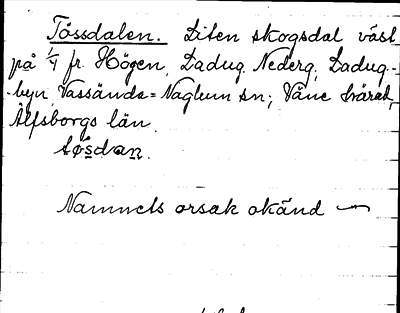 Tössdalen. Liten skogsdal väst
på 1/4 fr. Högen, Ladug. Nederg., Ladug.-
-byn, Vassända-Naglum sn; Väne härad,
Älfsborgs län.
tøsdan.
Namnets orsak okänd